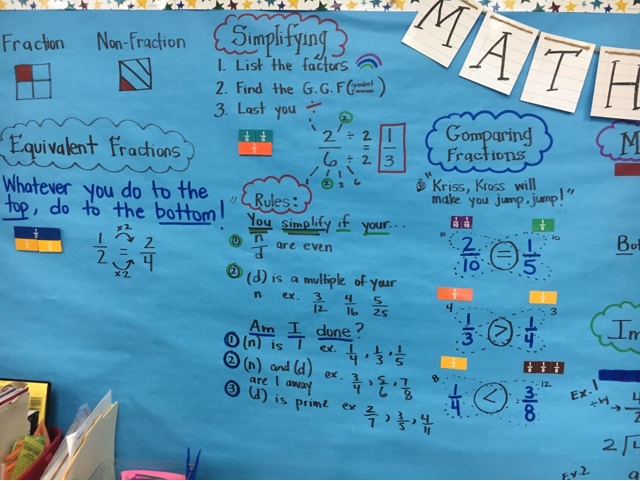 MATH
Fraction
Non-Fraction
Equivalent Fractions
Whatever you do to the
top, do to the bottom!
1/2
×2
1/2 = 2/4
×2
Simplifying
1. List the factors
2. Find the G.G.F (greatest common)
3. Last you ÷
2
2/6 ÷ 2/2 = 1/3
1 2 1 3 6
Rules:
You simplify if your...
① n/d are even
② (d) is a multiple of your
n ex. 3/12 4/16 5/25
Am I done?
① (n) is 1 ex. 1/4, 1/3, 1/5
② (n) and (d) ex. 3/4, 5/6, 7/8
are 1 away
③ (d) is prime ex 2/7, 3/5, 4/11
Comparing
Fractions
"Kriss, Kross will
make you jump, jump!"
1/10 1/10 1/5
10 10
2/10 = 1/5
4 3
1/3 > 1/4
8 12
1/4 < 3/8
M
Bo
Im
Ex. 1
÷4 → 4
2
2
Ex. 2